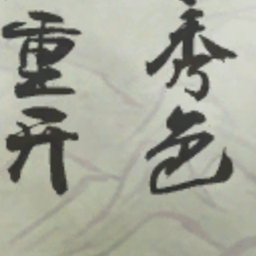 秀色
重开